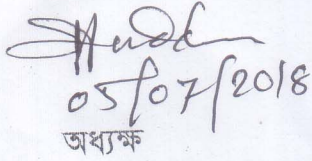 05/07/2018
অধ্যক্ষ